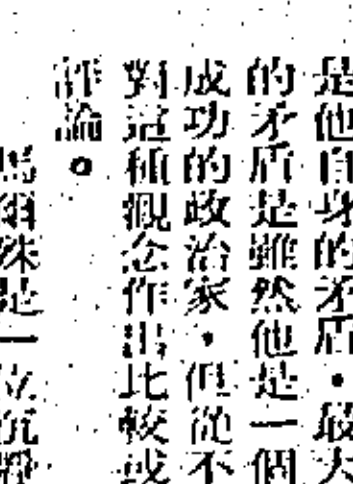 是他自身的矛盾。最大
的矛盾是雖然他是一個
成功的政治家，但從不
對這種觀念作出比較或
評論。
馬翊殊是一位